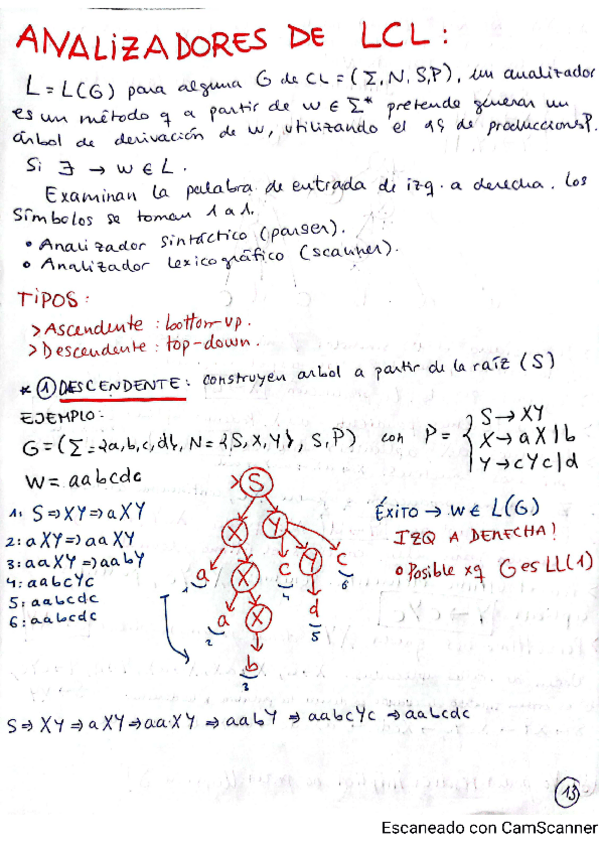 ANALIZADORES DE LCL:
L = L(G) para alguna G de CL = (Σ, N, S, P), un analizador
es un método q a partir de w ∈ Σ* pretende generar un
árbol de derivación de w, utilizando el de produccions P.
Si ∃ → w ∈ L.
Examinan la palabra de entrada de izq. a derecha. Los
símbolos se toman 1 a 1.
• Analizador sintáctico (parser).
• Analizador lexicográfico (scanner).
TIPOS:
> Ascendente: bottom-up.
> Descendente: top-down.
* ① DESCENDENTE: construyen arbol a partir de la raíz (S)
EJEMPLO:
G = (Σ = {a, b, c, d}, N = {S, X, Y}, S, P) con P = { S → XY
X → aX | b
Y → cYc | d
W = aabcdc
1: S ⇒ XY ⇒ aXY
2: aXY ⇒ aaXY
3: aaXY ⇒ aabY
4: aabcYc
5: aabcdc
6: aabcdc
> S
X Y
a X c Y c
1 4 6
a X d
2 5
b
3
Éxito → w ∈ L(G)
IZQ A DERECHA!
• Posible xq G es LL(1)
S ⇒ XY ⇒ aXY ⇒ aaXY ⇒ aabY ⇒ aabcYc ⇒ aabcdc
13
Escaneado con CamScanner